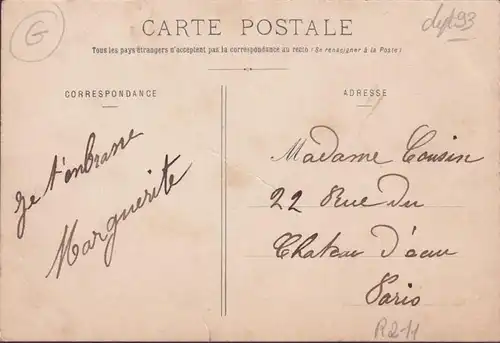 G
dept 93
CARTE POSTALE
Tous les pays étrangers n'acceptent pas la correspondance au recto (Se renseigner à la Poste)
CORRESPONDANCE
Je t'enbrasse
Marguerite
ADRESSE
Madame Cousin
22 Rue du
Chateau d'eau
Paris
R2-11